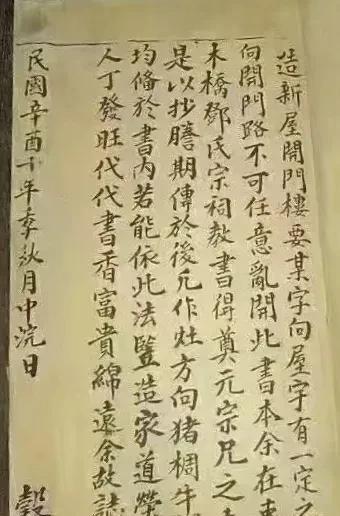 造新屋開門樓要某字向屋字有一定之
向開門路不可任意亂開此書本余在東
木橋鄧氏宗祠教書得奠元宗兄之
是以抄謄期傳於後凡作灶方向猪棡牛
均俻於書內若能依此法竪造家道榮
人丁發旺代代書香富貴綿遠余故誌
民國辛酉十年季秋月中浣日
穀